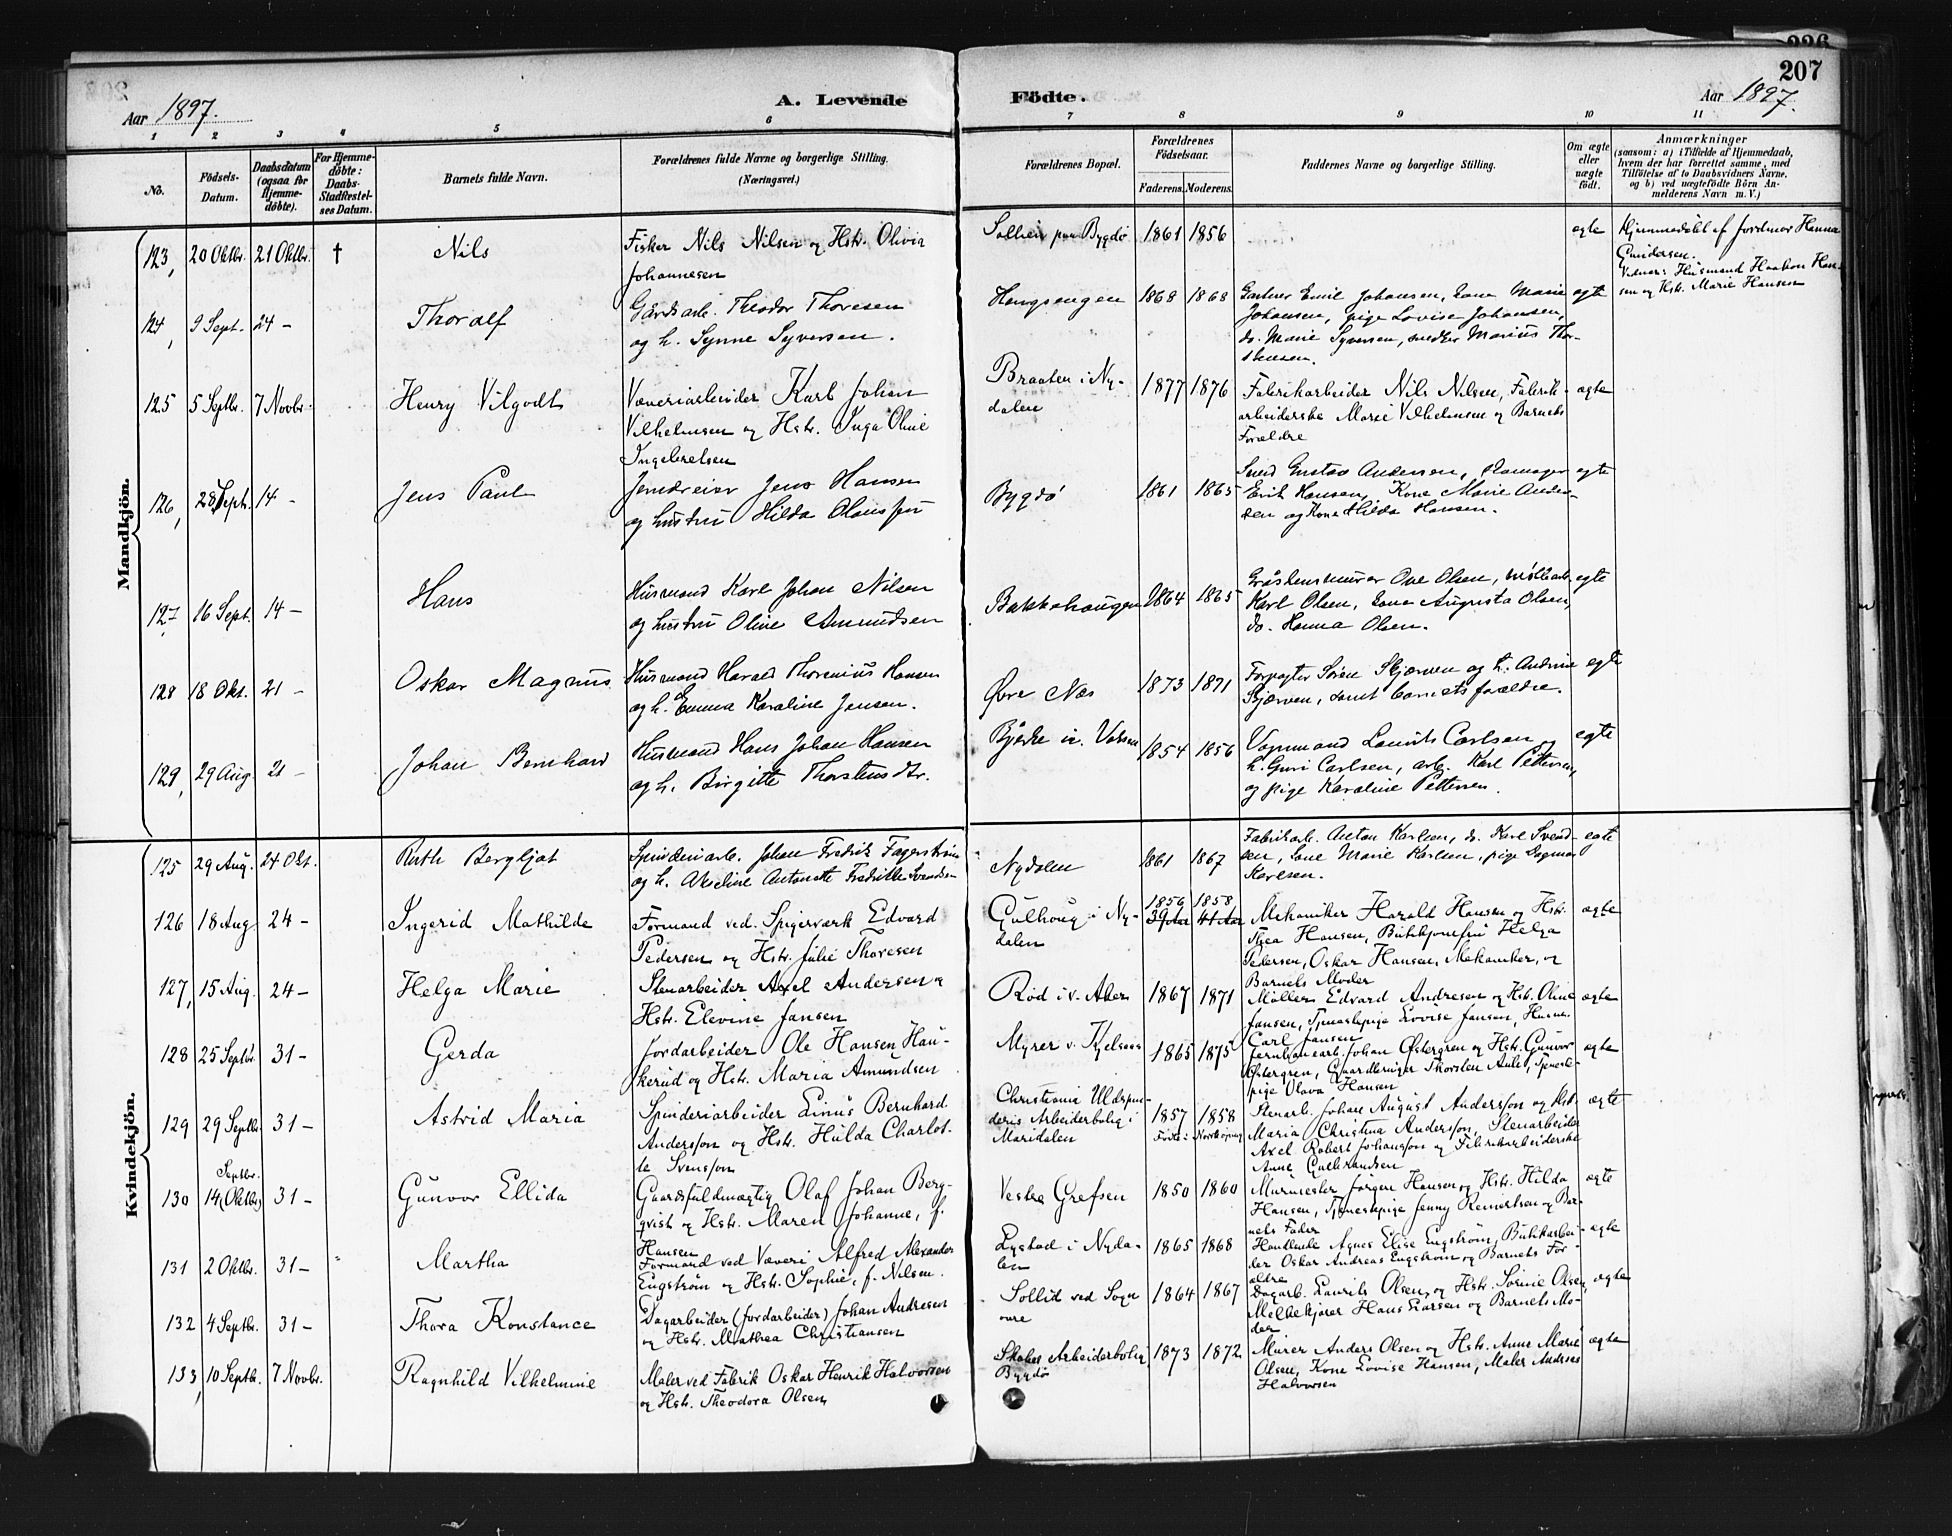 207
Aar 1897.
A. Levende Födte.
Aar 1897.
1 2 3 4 5 6 7 8 9 10 11
No.
Födsels-Datum.
Daabsdatum (ogsaa for Hjemme-döbte).
For Hjemme-döbte: Daabs-Stadfæstel-ses Datum.
Barnets fulde Navn.
Forældrenes fulde Navne og borgerlige Stilling.
(Næringsvei.)
Forældrenes Bopæl.
Forældrenes Födselsaar.
Faderens. Moderens.
Faddernes Navne og borgerlige Stilling.
Om ægte eller uægte födt.
Anmærkninger
(saasom: a) i Tilfælde af Hjemmedaab, hvem der har forrettet samme, med Tilföielse af to Daabsvidners Navne, og b) ved uægtefödte Börn An-melderens Navn m. V.)
Mandkjön.
123, 20 Oktbr. 21 Oktbr. † Nils
Fisker Nils Nilsen og Hstr. Olivia
Johannesen
Bygdö 1861 1856 egte
Hjemmedöbt af Jordmor Hanna
Gundersen.
Vidner: Husmand Haakon Han-
sen og Hstr. Marie Hansen
124, 9 Sept. 24 - Thoralf
Gårdsarb. Theodor Thoresen
og h. Synne Syversen.
Hengsengen 1868 1868
Gartner Emil Johansen, Kone Marie egte
Johansen, pige Lovise Johansen,
do. Marie Syversen, snedker Marius Thor-
stensen.
125 5 Septbr. 7 Novbr. Henry Vilgodt
Væveriarbeider Karl Johan
Vilhelmsen og Hstr. Inga Oline
Ingebretsen
Braaten i Ny-
dalen
1877 1876
Fabrikarbeider Nils Nilsen, Fabrik- egte
arbeiderske Marie Vilhelmsen og Barnets
Forældre
126, 28 Sept. 14 - Jens Paul
Jerndreier Jens Hansen
og hustru Hilda
Bygdö 1861 1865
Smed Gustav Andersen, egte
Erik Hansen, Kone Marie Ander-
sen og Kone Hilda Hansen.
127, 16 Sept. 14 - Hans
Husmand Karl Johan Nilsen
og hustru Oline Amundsen
Bakkehaugen 1864 1865
Gråstensmurer Ove Olsen, egte
Karl Olsen, Kone Augusta Olsen,
do. Hanna Olsen.
128 18 Okt. 21 - Oskar Magnus
Husmand Harald Thorenius Hansen
og h. Emma Karoline Jensen.
Øvre Næs 1873 1871
Forpagter Sören Skjærven og h. Andrine egte
Skjærven, samt barnets forældre.
129, 29 Aug. 21 - Johan Bernhard
Husmand Hans Johan Hansen
og h. Birgitte Thorstensdtr.
Bjerke 1854 1856
Vognmand Laurits Carlsen egte
h. Guri Carlsen, arb. Karl Pettersen,
og pige Karoline Pettersen.
Kvindekjön.
125 29 Aug. 24 Okt. Ruth Bergljot
Spinderiarb. Johan Fredrik Fagerström
og h. Akseline Antonette Fredrikke Svendsen
Nydalen 1861 1867
Fabrikarb. Anton Karlsen, do. Karl Svend- egte
sen, Kone Marie Karlsen, pige Dagmar
Karlsen.
126 18 Aug. 24 - Ingerid Mathilde
Formand ved Spigerværk Edvard
Pedersen og Hstr. Julie Thoresen
Gulhaug i Ny-
dalen
1856 1858
Mekaniker Harald Hansen og Hstr. egte
Thea Hansen, Butikjomfru Helga
Pedersen, Oskar Hansen, Mekaniker, og
Barnets Moder
127, 15 Aug. 24 - Helga Marie
Stenarbeider Axel Andersen og
Hstr. Elevine Jansen
Röd i v. Aker 1867 1871
Möller Edvard Andresen og Hstr. Oline egte
Jansen, Tjenestepige Lovise Jansen,
Carl Jansen
128 25 Septbr. 31 - Gerda
Jordarbeider Ole Hansen Hau-
kerud og Hstr. Maria Amundsen
Myrer v. Kjelsaas 1865 1875
Jernbanearb. Johan Østergren og Hstr. Gunvor egte
Østergren, Thorsten Tjeneste-
pige Olava Hansen
129 29 Septbr. 31 - Astrid Maria
Spinderiarbeider Linus Bernhard
Andersson og Hstr. Hulda Charlot-
te Svensson
Christiania Uldspin-
deris Arbeiderbolig i
Maridalen
1857 1858
Födt i Norrköping
Stenarb. Johan August Andersson og Hstr. egte
Maria Christina Andersson, Stenarbeider
Axel Robert Johansson og Fabrikarbeiderske
Anne Gulbrandsen
130 Septbr. 14 (Oktbr) 31 - Gunvor Ellida
Gaardsfuldmægtig Olaf Johan Berg-
qvist og Hstr. Maren Johanne, f.
Hansen
Vestre Grefsen 1850 1860
Murmester Jörgen Hansen og Hstr. Hilda egte
Hansen, Tjenestepige Jenny Reinertsen og Bar-
nets Fader
131 2 Oktbr. 31 - Martha
Formand ved Væveri Alfred Alexander
Engström og Hstr. Sophie, f. Nilsen.
Lystad i Nyda-
len
1865 1868
Handlende Agnes Elise Engström, Butikarbei- egte
der Oskar Andreas Engström og Barnets For-
ældre
132 4 Septbr. 31 - Thora Konstance
Dagarbeider (Jordarbeider) Johan Andresen
og Hstr. Mathea Christiansen
Sollid ved Sogn
övre
1864 1867
Dagarb. Laurits Olsen og Hstr. Sörine Olsen, egte
Melkekjörer Hans Larsen og Barnets Mo-
der
133, 10 Septbr. 7 Novbr. Ragnhild Vilhelmine
Maler ved Fabrik Oskar Henrik Halvorsen
og Hstr. Theodora Olsen
Arbeiderbolig
Bygdö
1873 1872
Murer Anders Olsen og Hstr. Anne Marie egte
Olsen, Kone Lovise Hansen, Maler Andreas
Halvorsen